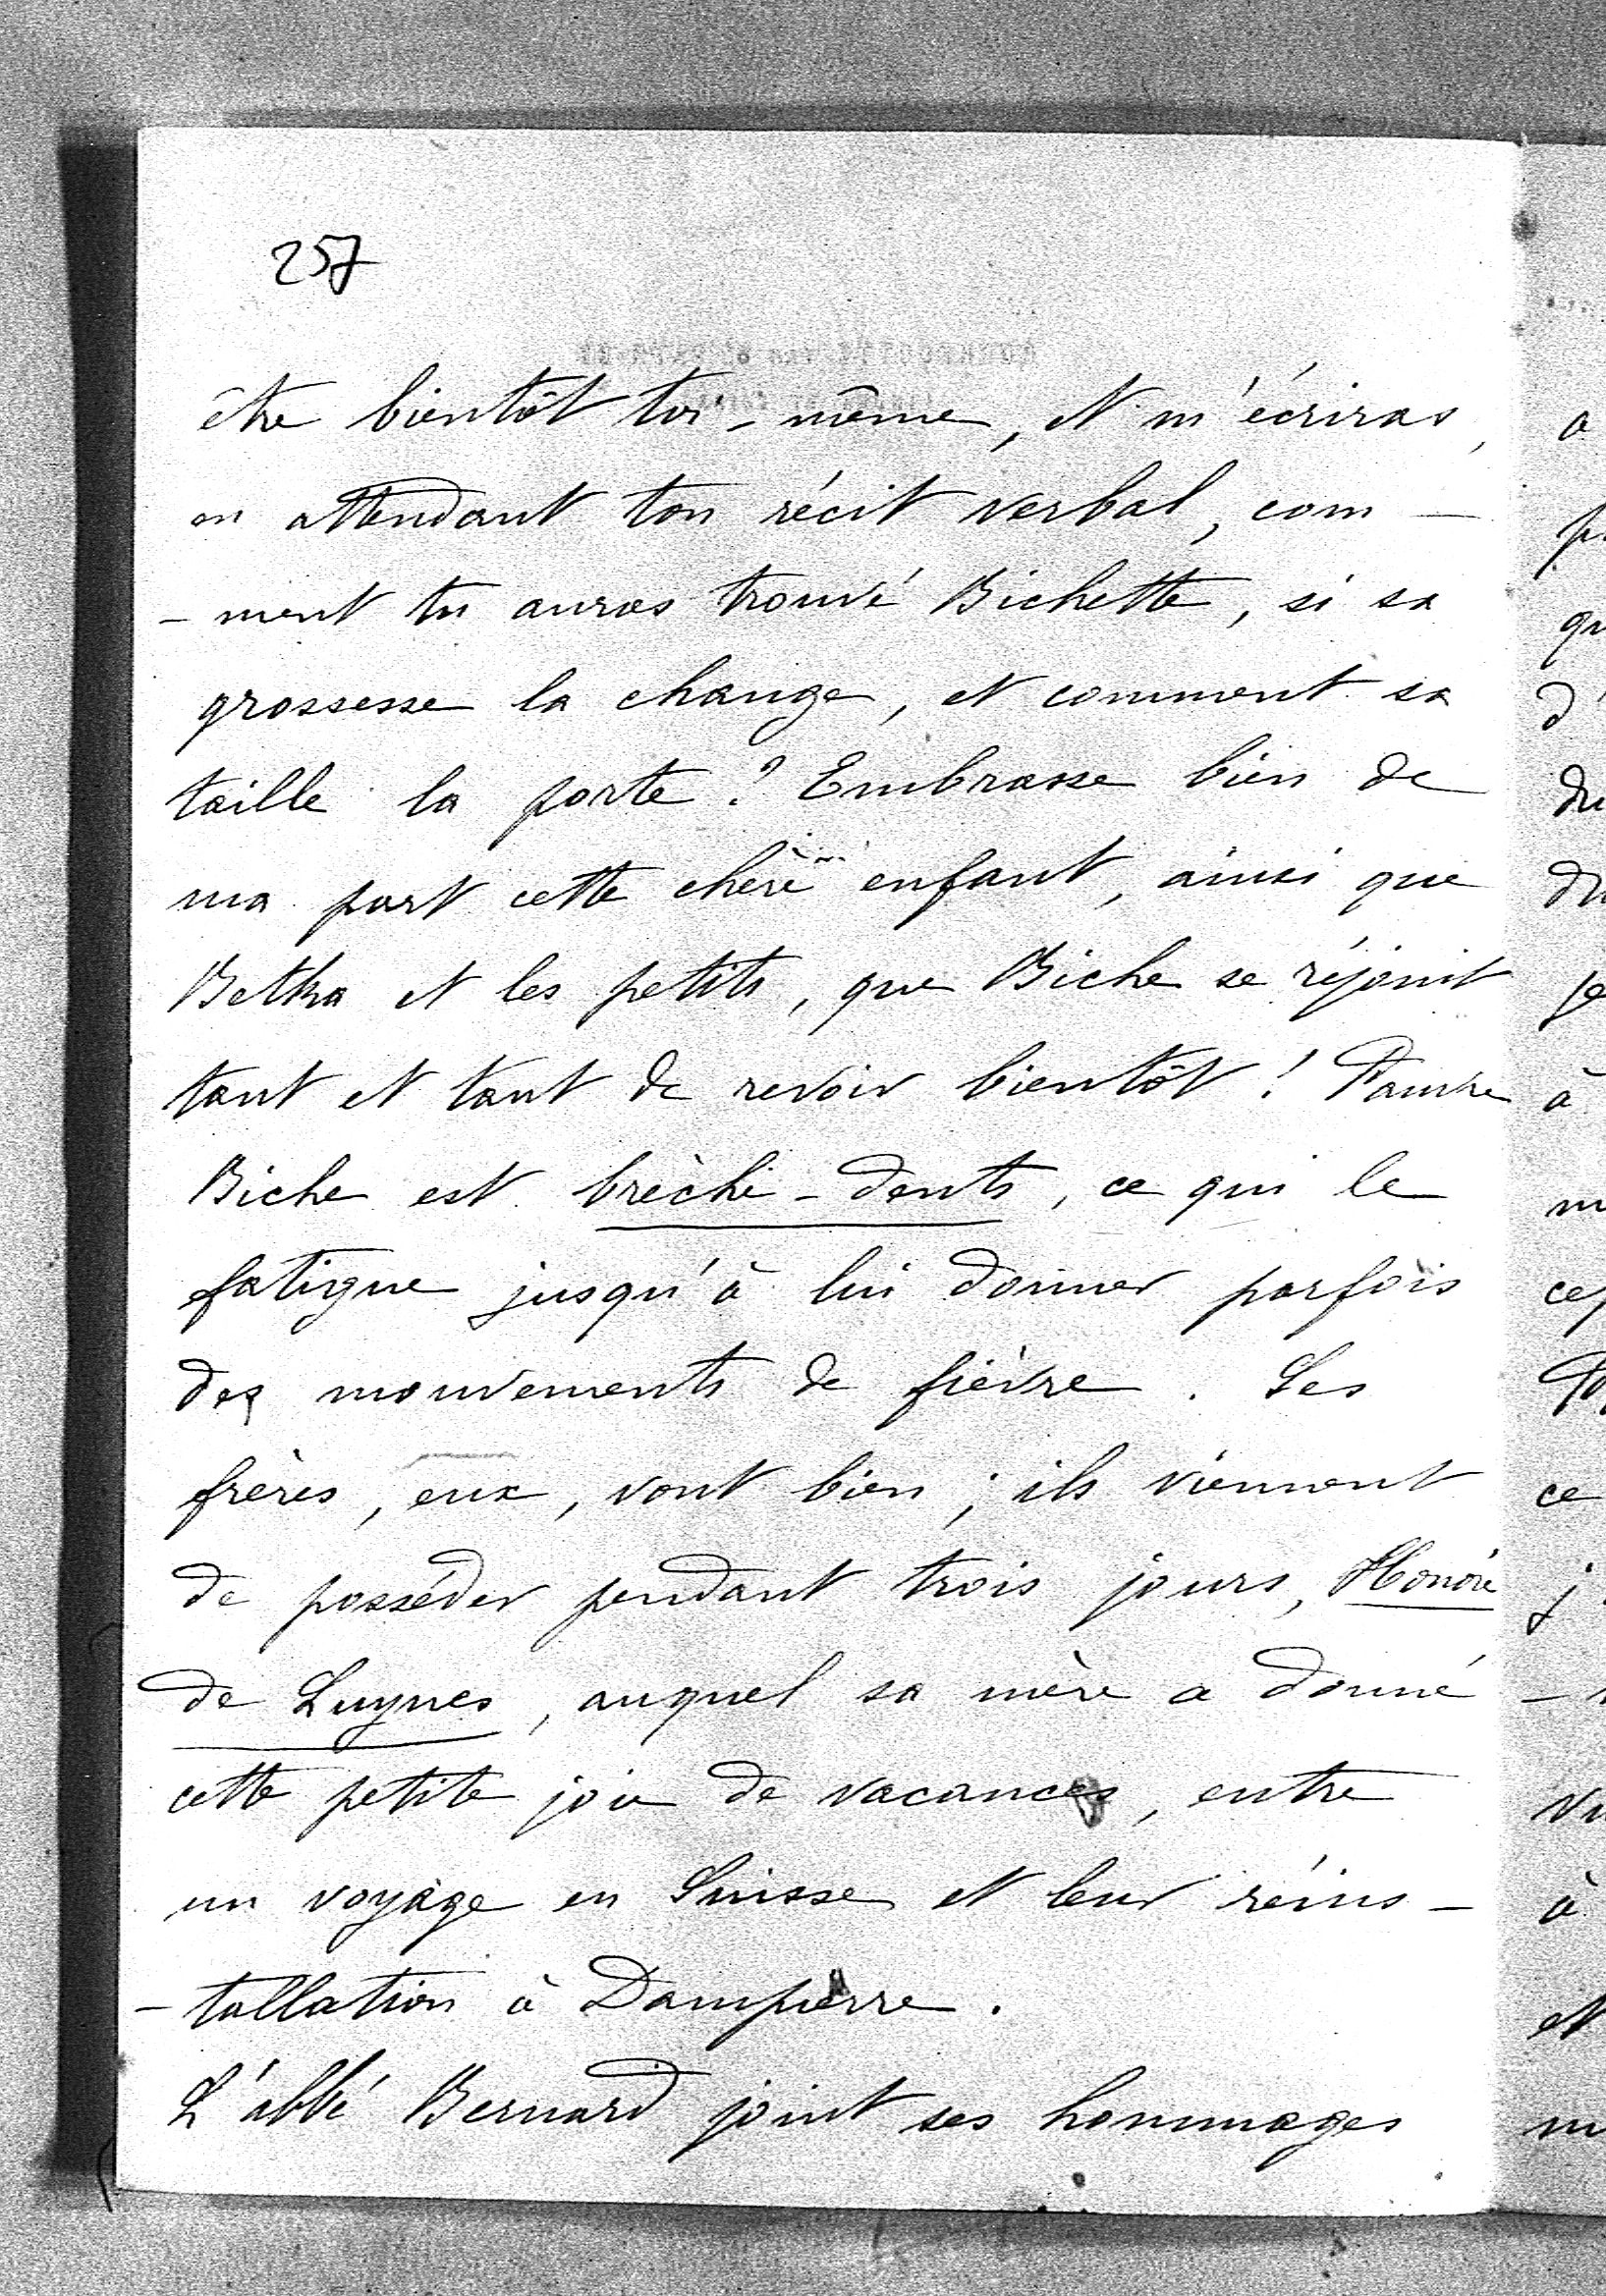 257
être bientôt toi-même, et m'écriras,
en attendant ton récit verbal, com-
-ment tu auras trouvé Bichette, si sa
grossesse la change, et comment sa
taille la porte ? Embrasse bien de
ma part cette chère enfant, ainsi que
Betka et les petits, que Biche se réjouit
tant et tant de revoir bientôt ! Pauvre
Biche est brèche-dents, ce qui le
fatigue jusqu'à lui donner parfois
des mouvements de fièvre. Ses
frères, eux, vont bien ; ils viennent
de posséder pendant trois jours, Honoré
de Luynes, auquel sa mère a donné
cette petite joie de vacances, entre
un voyage en Suisse et leur réins-
-tallation à Dampierre.
L'abbé Bernard joint ses hommages